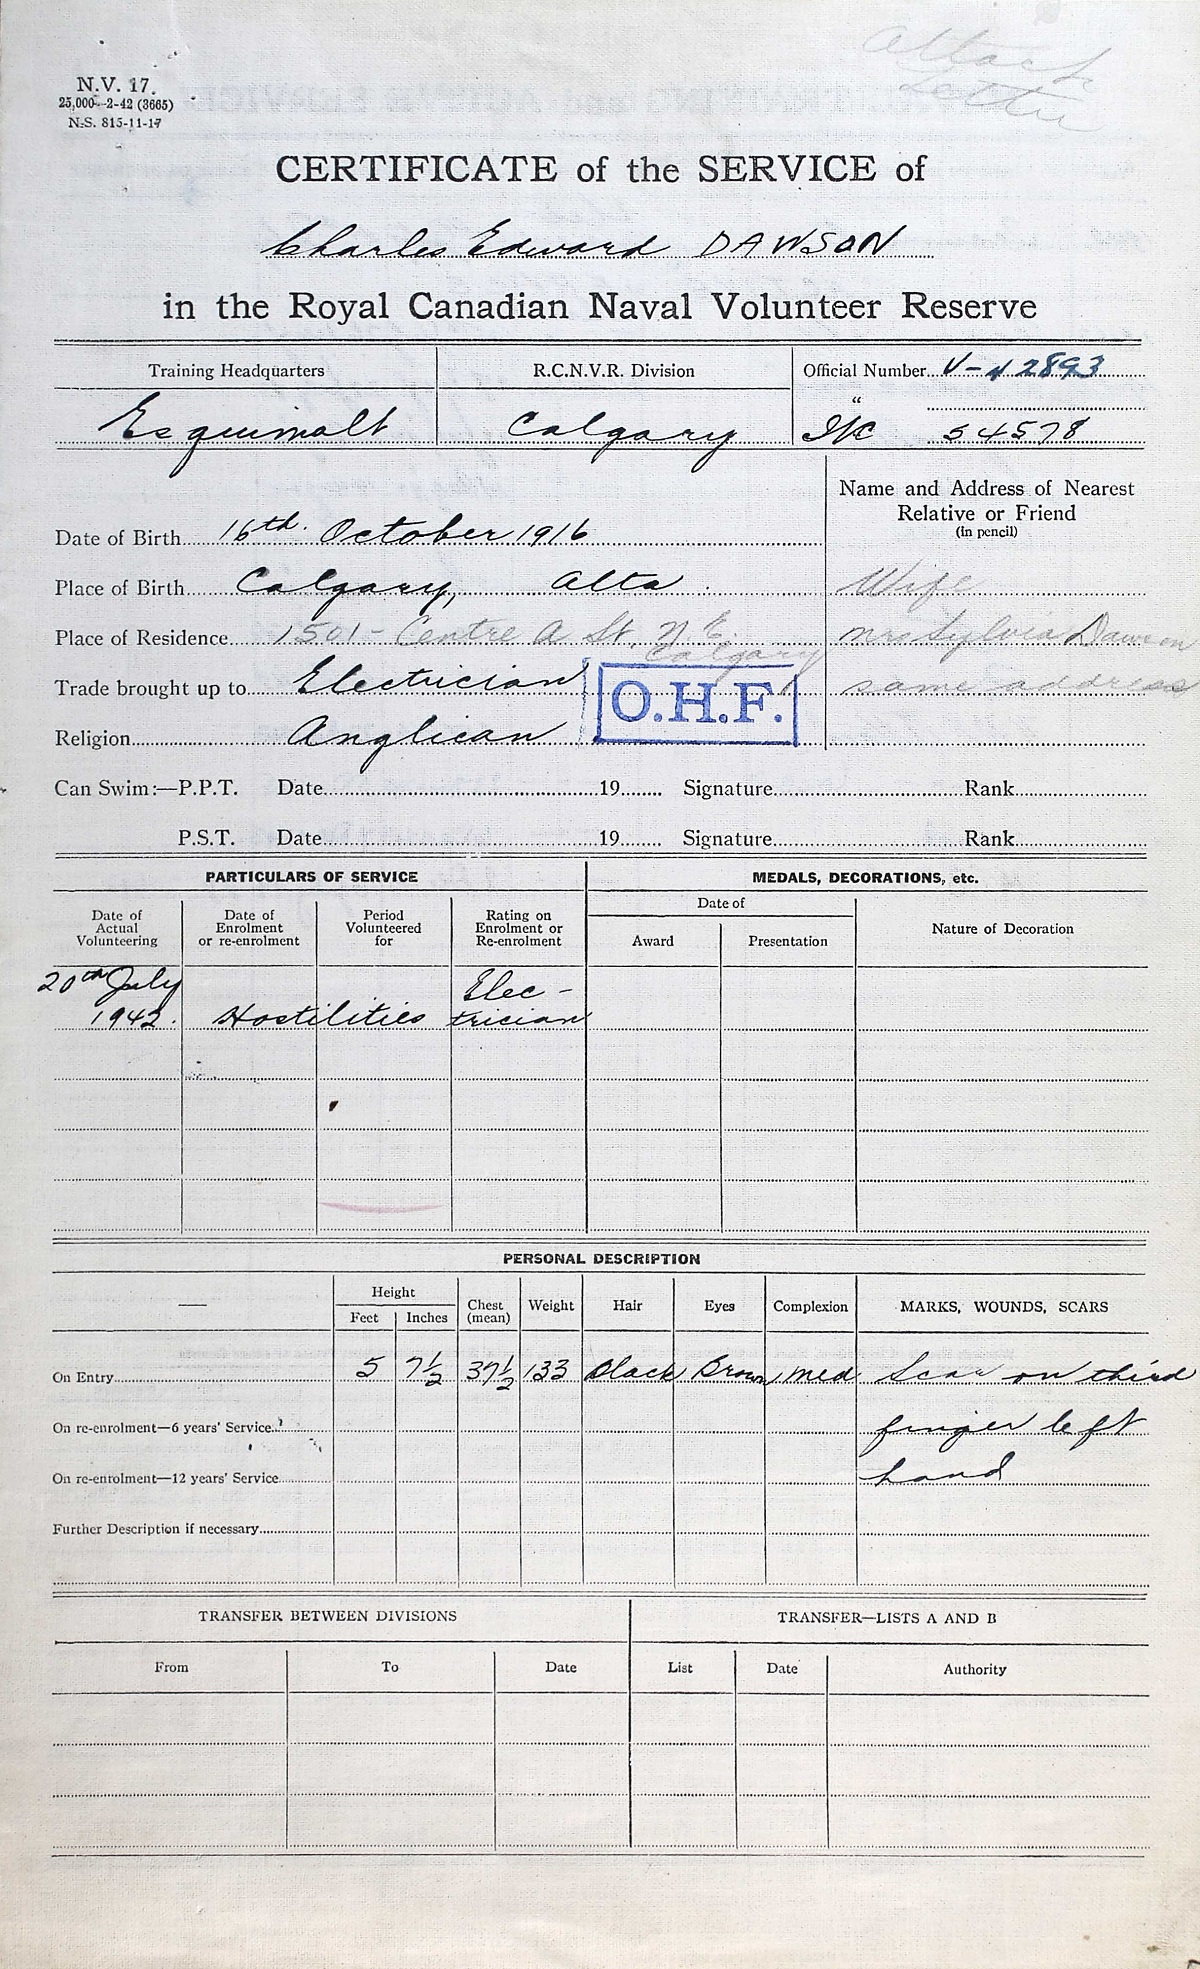 Attach
Letter
N.V. 17.
25,000—2-42 (3665)
N.S. 815-11-17
CERTIFICATE of the SERVICE of
Charles Edward DAWSON
in the Royal Canadian Naval Volunteer Reserve
Training Headquarters R.C.N.V.R. Division Official Number V-42893
Esquimalt Calgary " 54578
Name and Address of Nearest
Relative or Friend
(in pencil)
Date of Birth 16th. October 1916
Place of Birth Calgary, Alta. Wife
Place of Residence 1501 - Centre A St. N.E. Mrs Sylvia Dawson
Calgary
Trade brought up to Electrician same address
O.H.F.
Religion Anglican
Can Swim:—P.P.T. Date 19 Signature Rank
P.S.T. Date 19 Signature Rank
PARTICULARS OF SERVICE MEDALS, DECORATIONS, etc.
Date of Actual Volunteering Date of Enrolment or re-enrolment Period Volunteered for Rating on Enrolment or Re-enrolment Date of Award Presentation Nature of Decoration
20th July Elec-
1942. Hostilities trician
PERSONAL DESCRIPTION
— Height Feet Inches Chest (mean) Weight Hair Eyes Complexion MARKS, WOUNDS, SCARS
On Entry 5 7½ 37½ 133 Black Brown med Scar on third
On re-enrolment—6 years' Service finger left
On re-enrolment—12 years' Service hand
Further Description if necessary
TRANSFER BETWEEN DIVISIONS TRANSFER—LISTS A AND B
From To Date List Date Authority